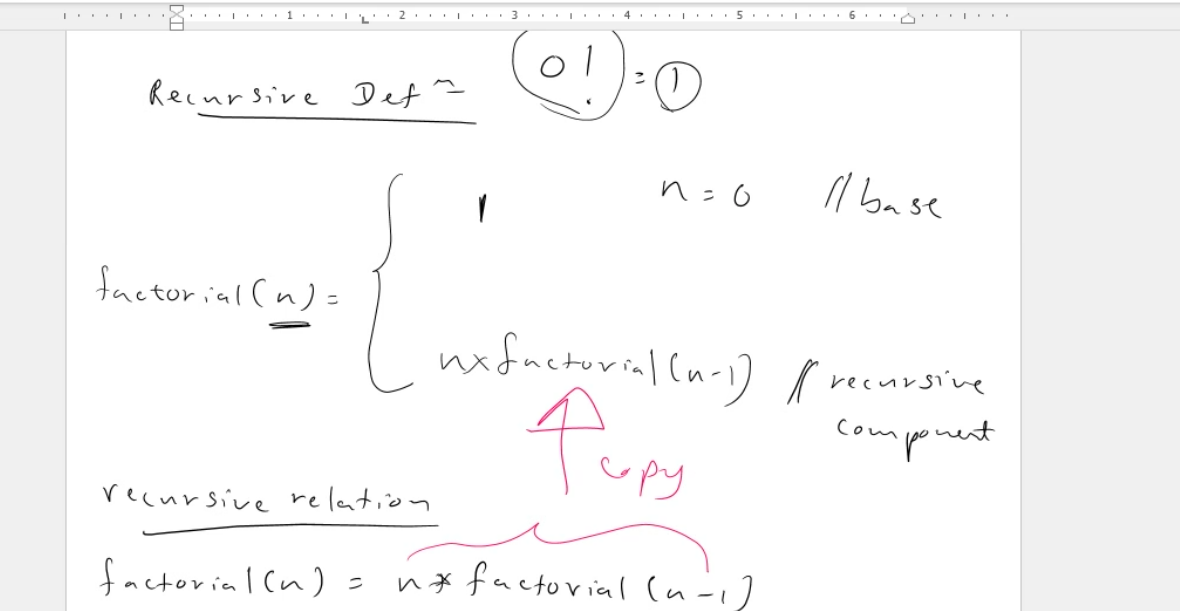 1 2 3 4 5 6
Recursive Defn 0! = 1
1 n = 0 // base
factorial(n) =
n x factorial(n-1) // recursive
component
copy
recursive relation
factorial(n) = n * factorial(n-1)